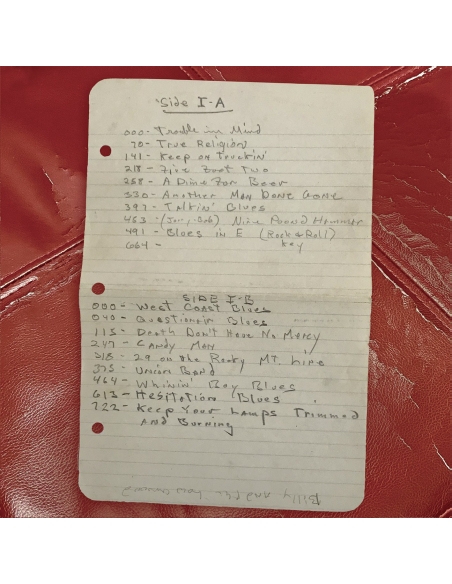 Side I-A
000- Trouble in Mind
70- True Religion
141- Keep on Truckin'
218- Five Foot Two
258- A Dime For Beer
330- Another Man Done Gone
397- Talkin' Blues
453- (Jorj, Bob) Nine Pound Hammer
491- Blues in E (Rock & Roll)
664- Key
SIDE I-B
000- West Coast Blues
040- Questionin Blues
115- Death Don't Have No Mercy
247- Candy Man
318- 29 on the Rocky Mt. Line
375- Union Band
464- Whinin' Boy Blues
613- Hesitation Blues
722- Keep Your Lamps Trimmed
And Burning
Billy and the